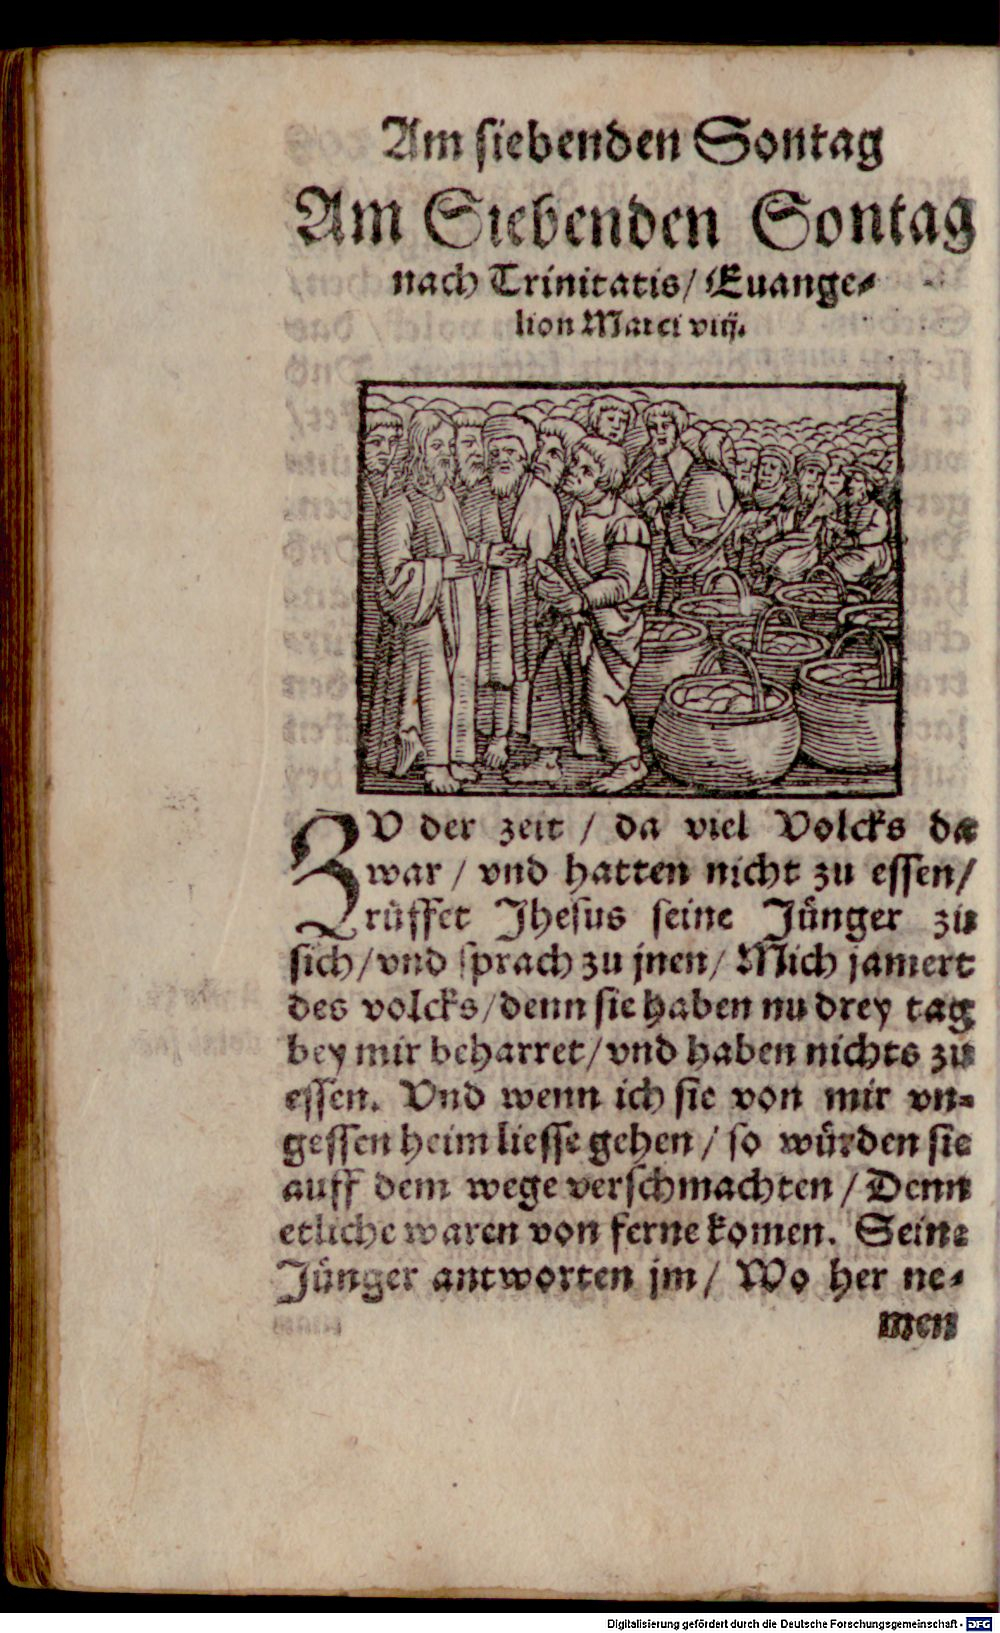 Am siebenden Sontag
Am Siebenden Sontag
nach Trinitatis/ Euange⸗
lion Marci viij.
ZV der zeit / da viel Volcks da
war / vnd hatten nicht zu essen/
rüffet Jhesus seine Jünger zu
sich/vnd sprach zu jnen/ Mich jamert
des volcks/denn sie haben nu drey tag
bey mir beharret/vnd haben nichts zu
essen. Vnd wenn ich sie von mir vn⸗
gessen heim liesse gehen / so würden sie
auff dem wege verschmachten / Denn
etliche waren von ferne komen. Seine
Jünger antworten jm/ Wo her ne⸗
men
Digitalisierung gefördert durch die Deutsche Forschungsgemeinschaft - DFG